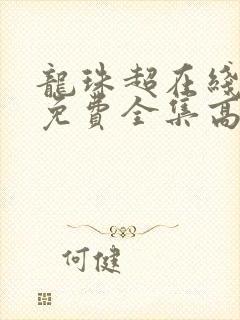 龍珠超在綫
免費全集高
何健